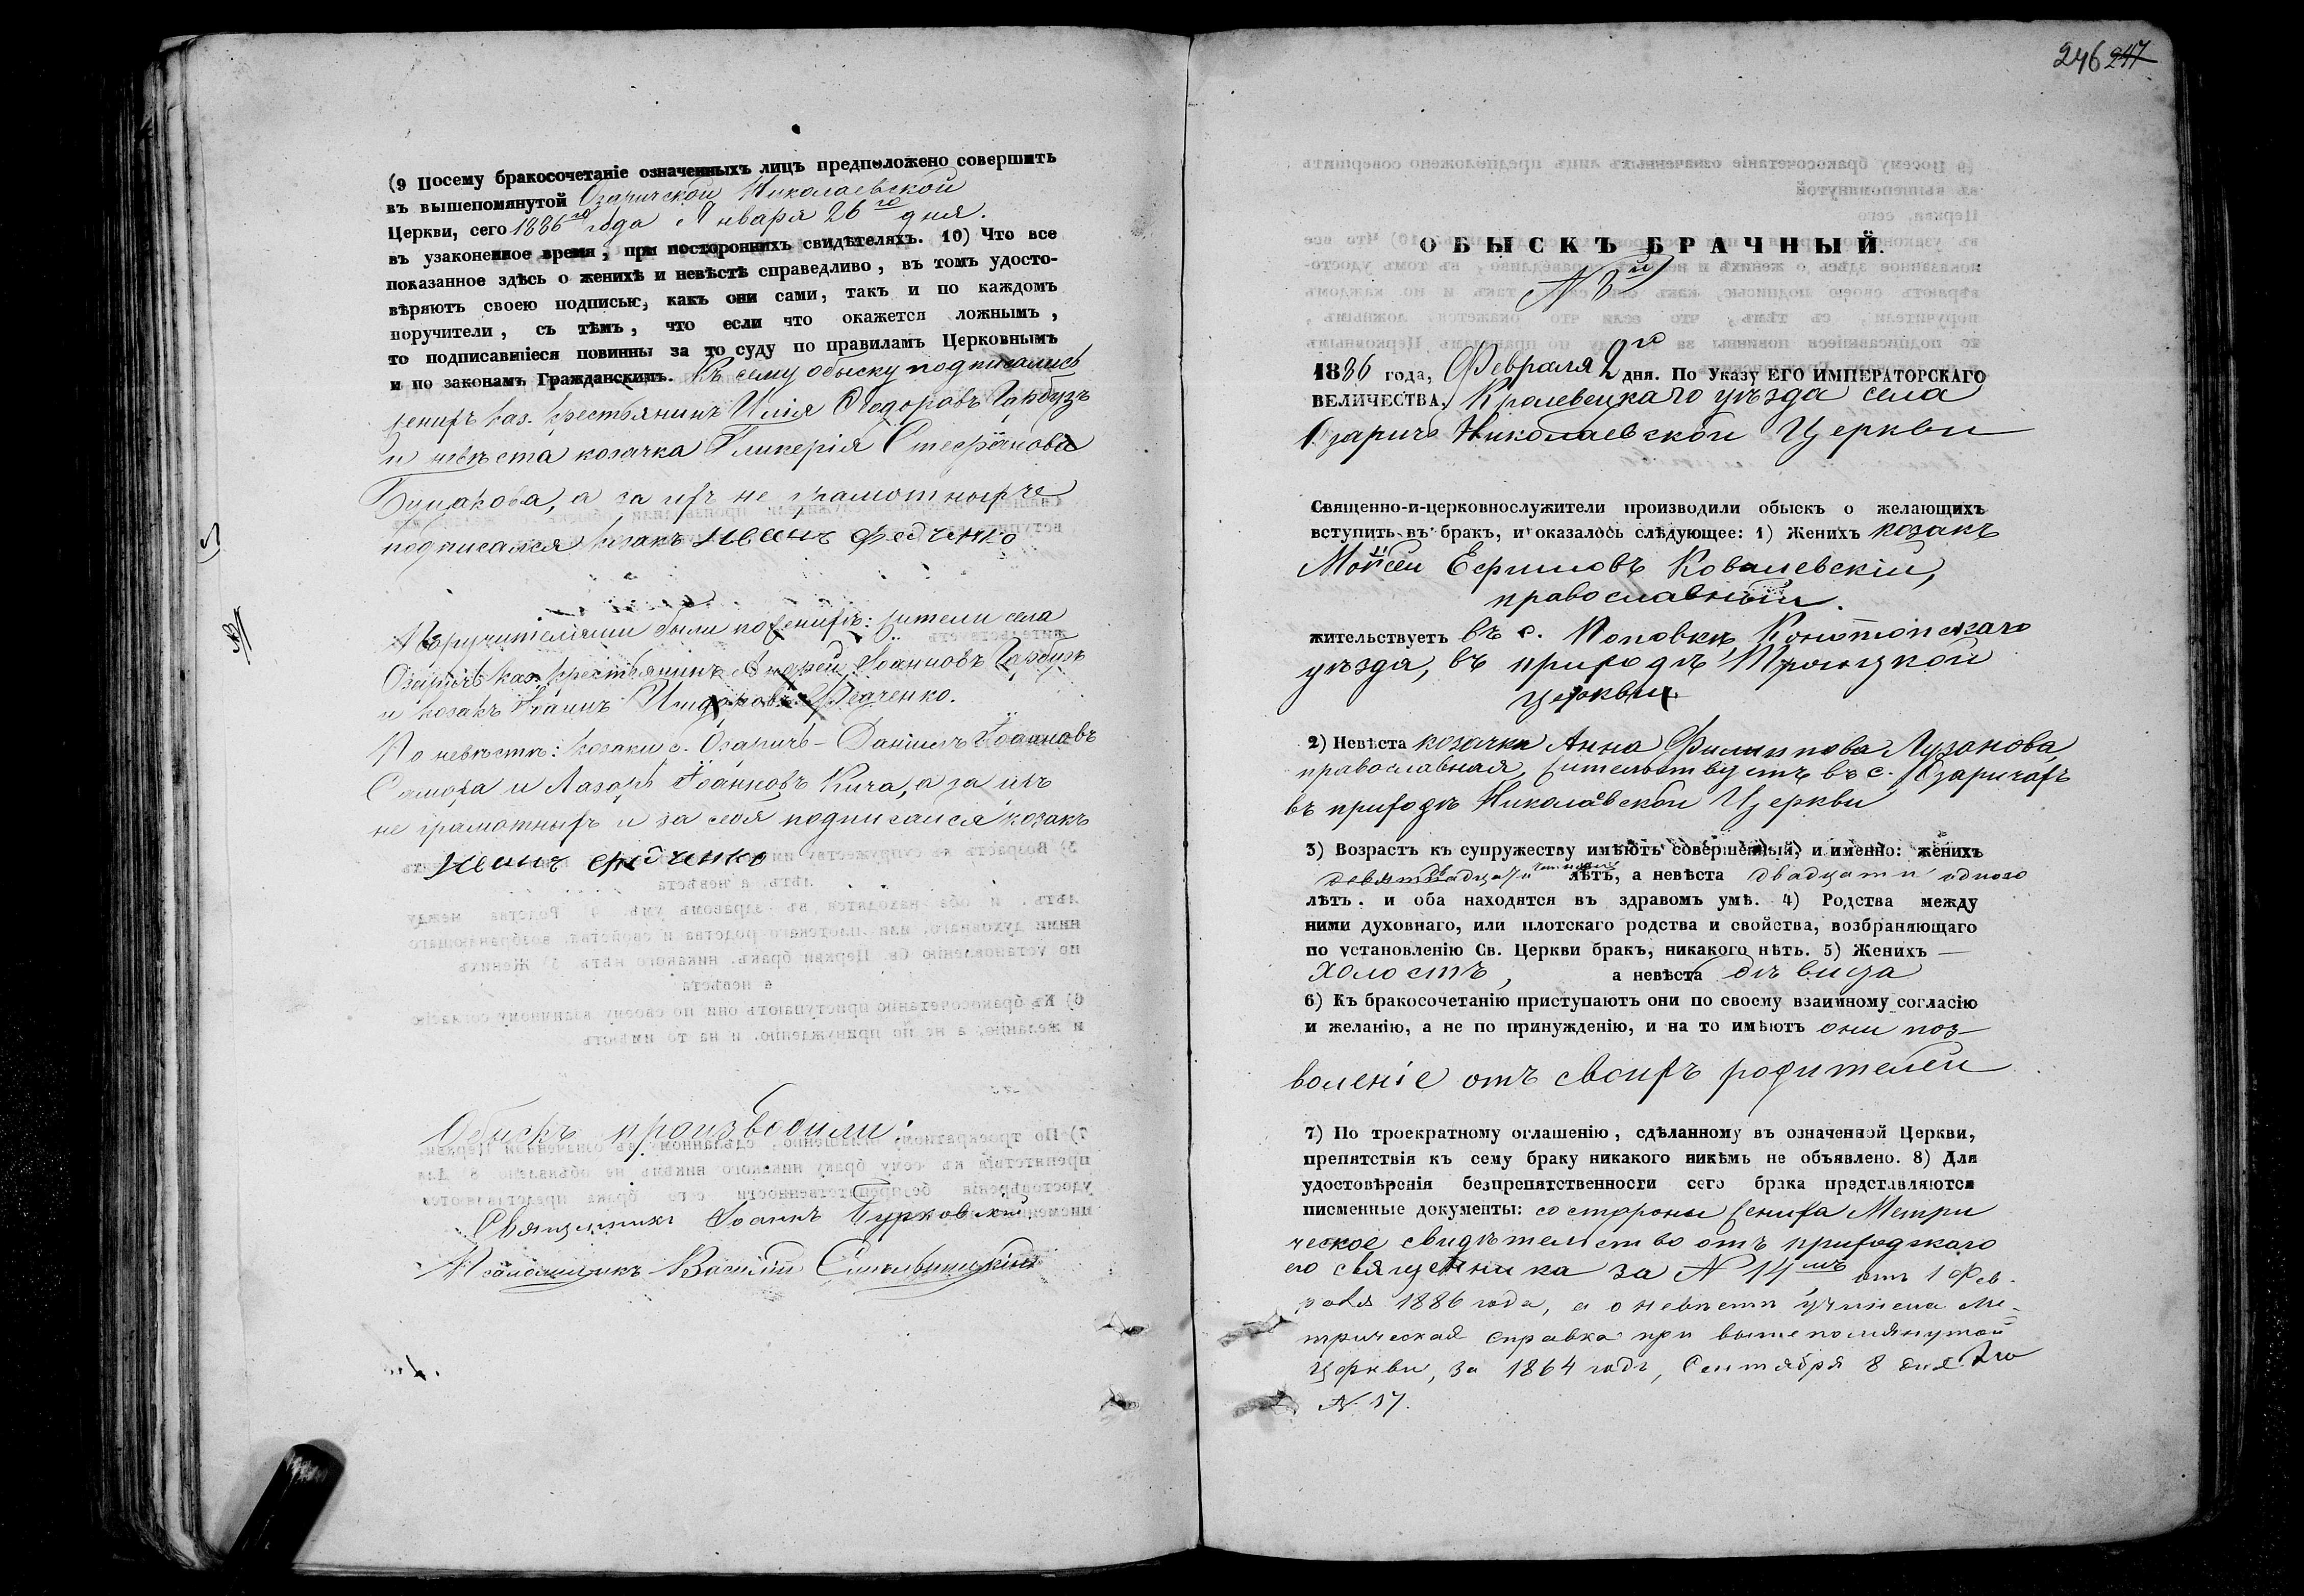 (9 Посему бракосочетаніе означенныхъ лицъ предположено совершить
въ вышепомянутой Озаричской Николаевской
Церкви, сего 1886го года Января 26го дня.
въ узаконенное время, при постороннихъ свидѣтеляхъ. 10) Что все
показанное здѣсь о женихѣ и невѣстѣ справедливо, въ томъ удосто-
вѣряютъ своею подписью, какъ они сами, такъ и по каждомъ
поручители, съ тѣмъ, что если что окажется ложнымъ,
то подписавшіеся повинны за то суду по правиламъ Церковнымъ
и по законамъ Гражданскимъ. Къ сему обыску подписались
жених каз. крестьянинъ Илія Ѳеодоровъ Гарбузъ
и невѣста козачка Гликерія Стефанова
а за ихъ не грамотныхъ
подписался козакъ Иванъ Федченко
Поручителями были по женихѣ: жители села
Озаричъ каз. крестьянинъ Андрей Іоанновъ Гарбузъ
и козакъ Іоаннъ Федченко.
По невѣстѣ: козаки с. Озаричъ - Даніилъ Іоанновъ
и Лазарь Іоанновъ Кича, а за ихъ
не грамотныхъ и за себя подписался козакъ
Иванъ Федченко
Обыскъ производили:
Священникъ Іоаннъ Бурковскій
Псаломщикъ Василій
246 247
ОБЫСКЪ БРАЧНЫЙ.
N 8й
1886 года, Февраля 2го дня. По Указу ЕГО ИМПЕРАТОРСКАГО
ВЕЛИЧЕСТВА, Кролевецкаго уѣзда села
Озаричъ Николаевской Церкви
Священно-и-церковнослужители производили обыскъ о желающихъ
вступить въ бракъ, и оказалось слѣдующее: 1) Женихъ козакъ
Моѵсей Ефимовъ Ковалевскій,
православный.
жительствуетъ въ с. Поповкѣ, Конотопскаго
уѣзда, въ приходѣ Троицкой
церкви
2) Невѣста козачка Анна Филиппова Лузанова,
православная, жительствуетъ въ с. Озаричахъ
въ приходѣ Николаевской Церкви
3) Возрастъ къ супружеству имѣютъ совершенный, и именно: женихъ
лѣтъ, а невѣста двадцати одного
лѣтъ. и оба находятся въ здравомъ умѣ. 4) Родства между
ними духовнаго, или плотскаго родства и свойства, возбраняющаго
по установленію Св. Церкви бракъ, никакого нѣтъ. 5) Женихъ —
холостъ, а невѣста дѣвица
6) Къ бракосочетанію приступаютъ они по своему взаимному согласію
и желанію, а не по принужденію, и на то имѣютъ они поз-
воленіе отъ своихъ родителей
7) По троекратному оглашенію, сдѣланному въ означенной Церкви,
препятствія къ сему браку никакого никѣмъ не объявлено. 8) Для
удостовѣренія безпрепятственности сего брака представляются
писменные документы: со стороны жениха Метри
ческое свидѣтельство отъ приходскаго
его священника за N 14мъ отъ 1 Фев-
раля 1886 года, а о невѣстѣ учинена ме-
трическая справка при вышепомянутой
Церкви, за 1864 годъ, Сентября 8 дня
N. 17.